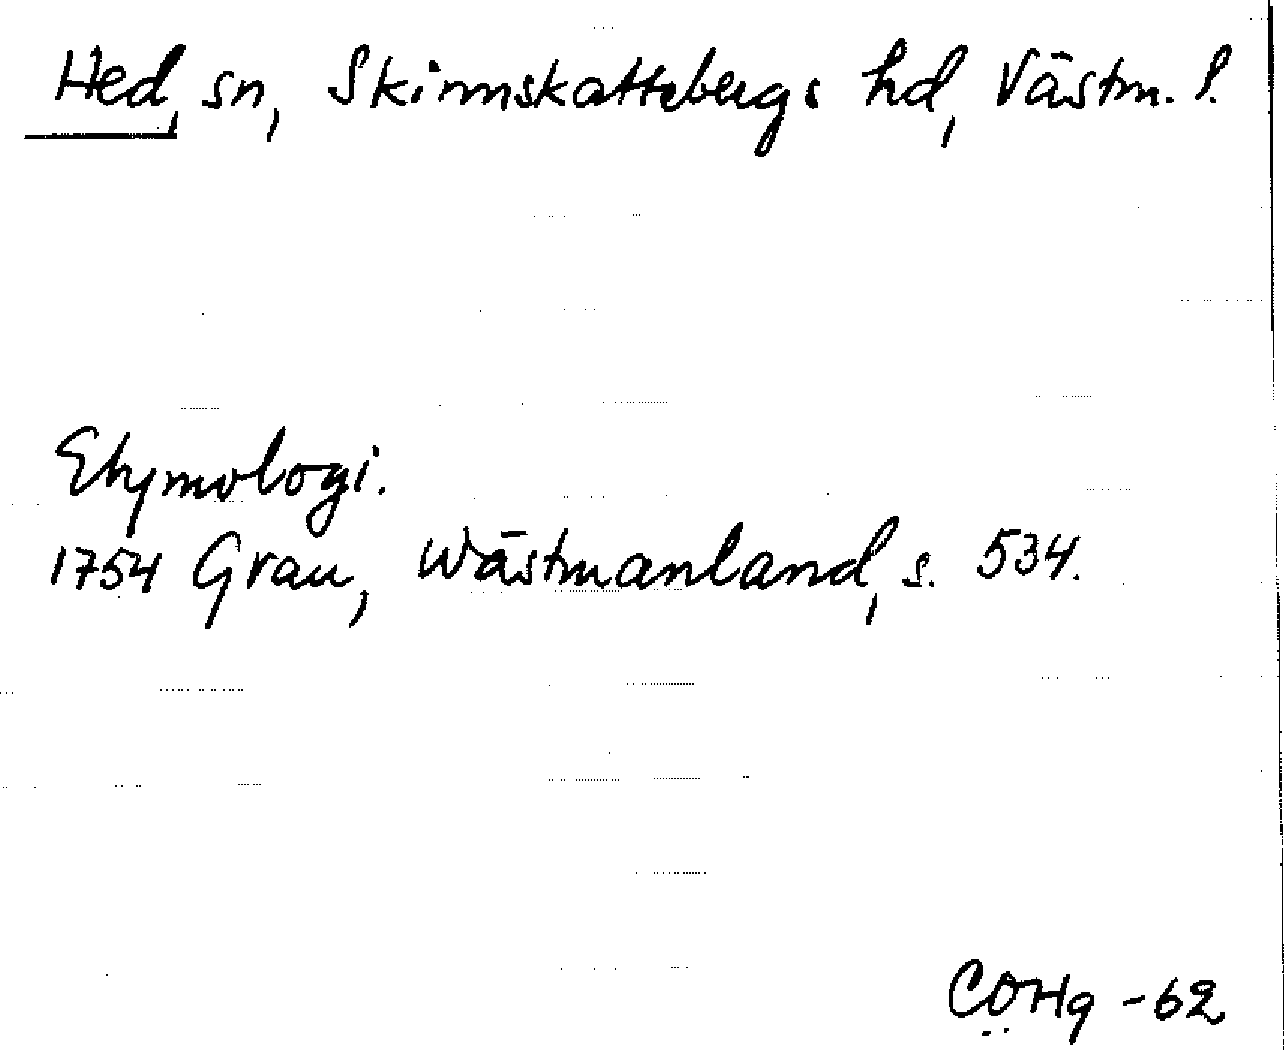 Hed, sn, Skinnskattebergs hd, Västm. l.
Etymologi.
1754 Grau, Wästmanland, s. 534.
COHg -62